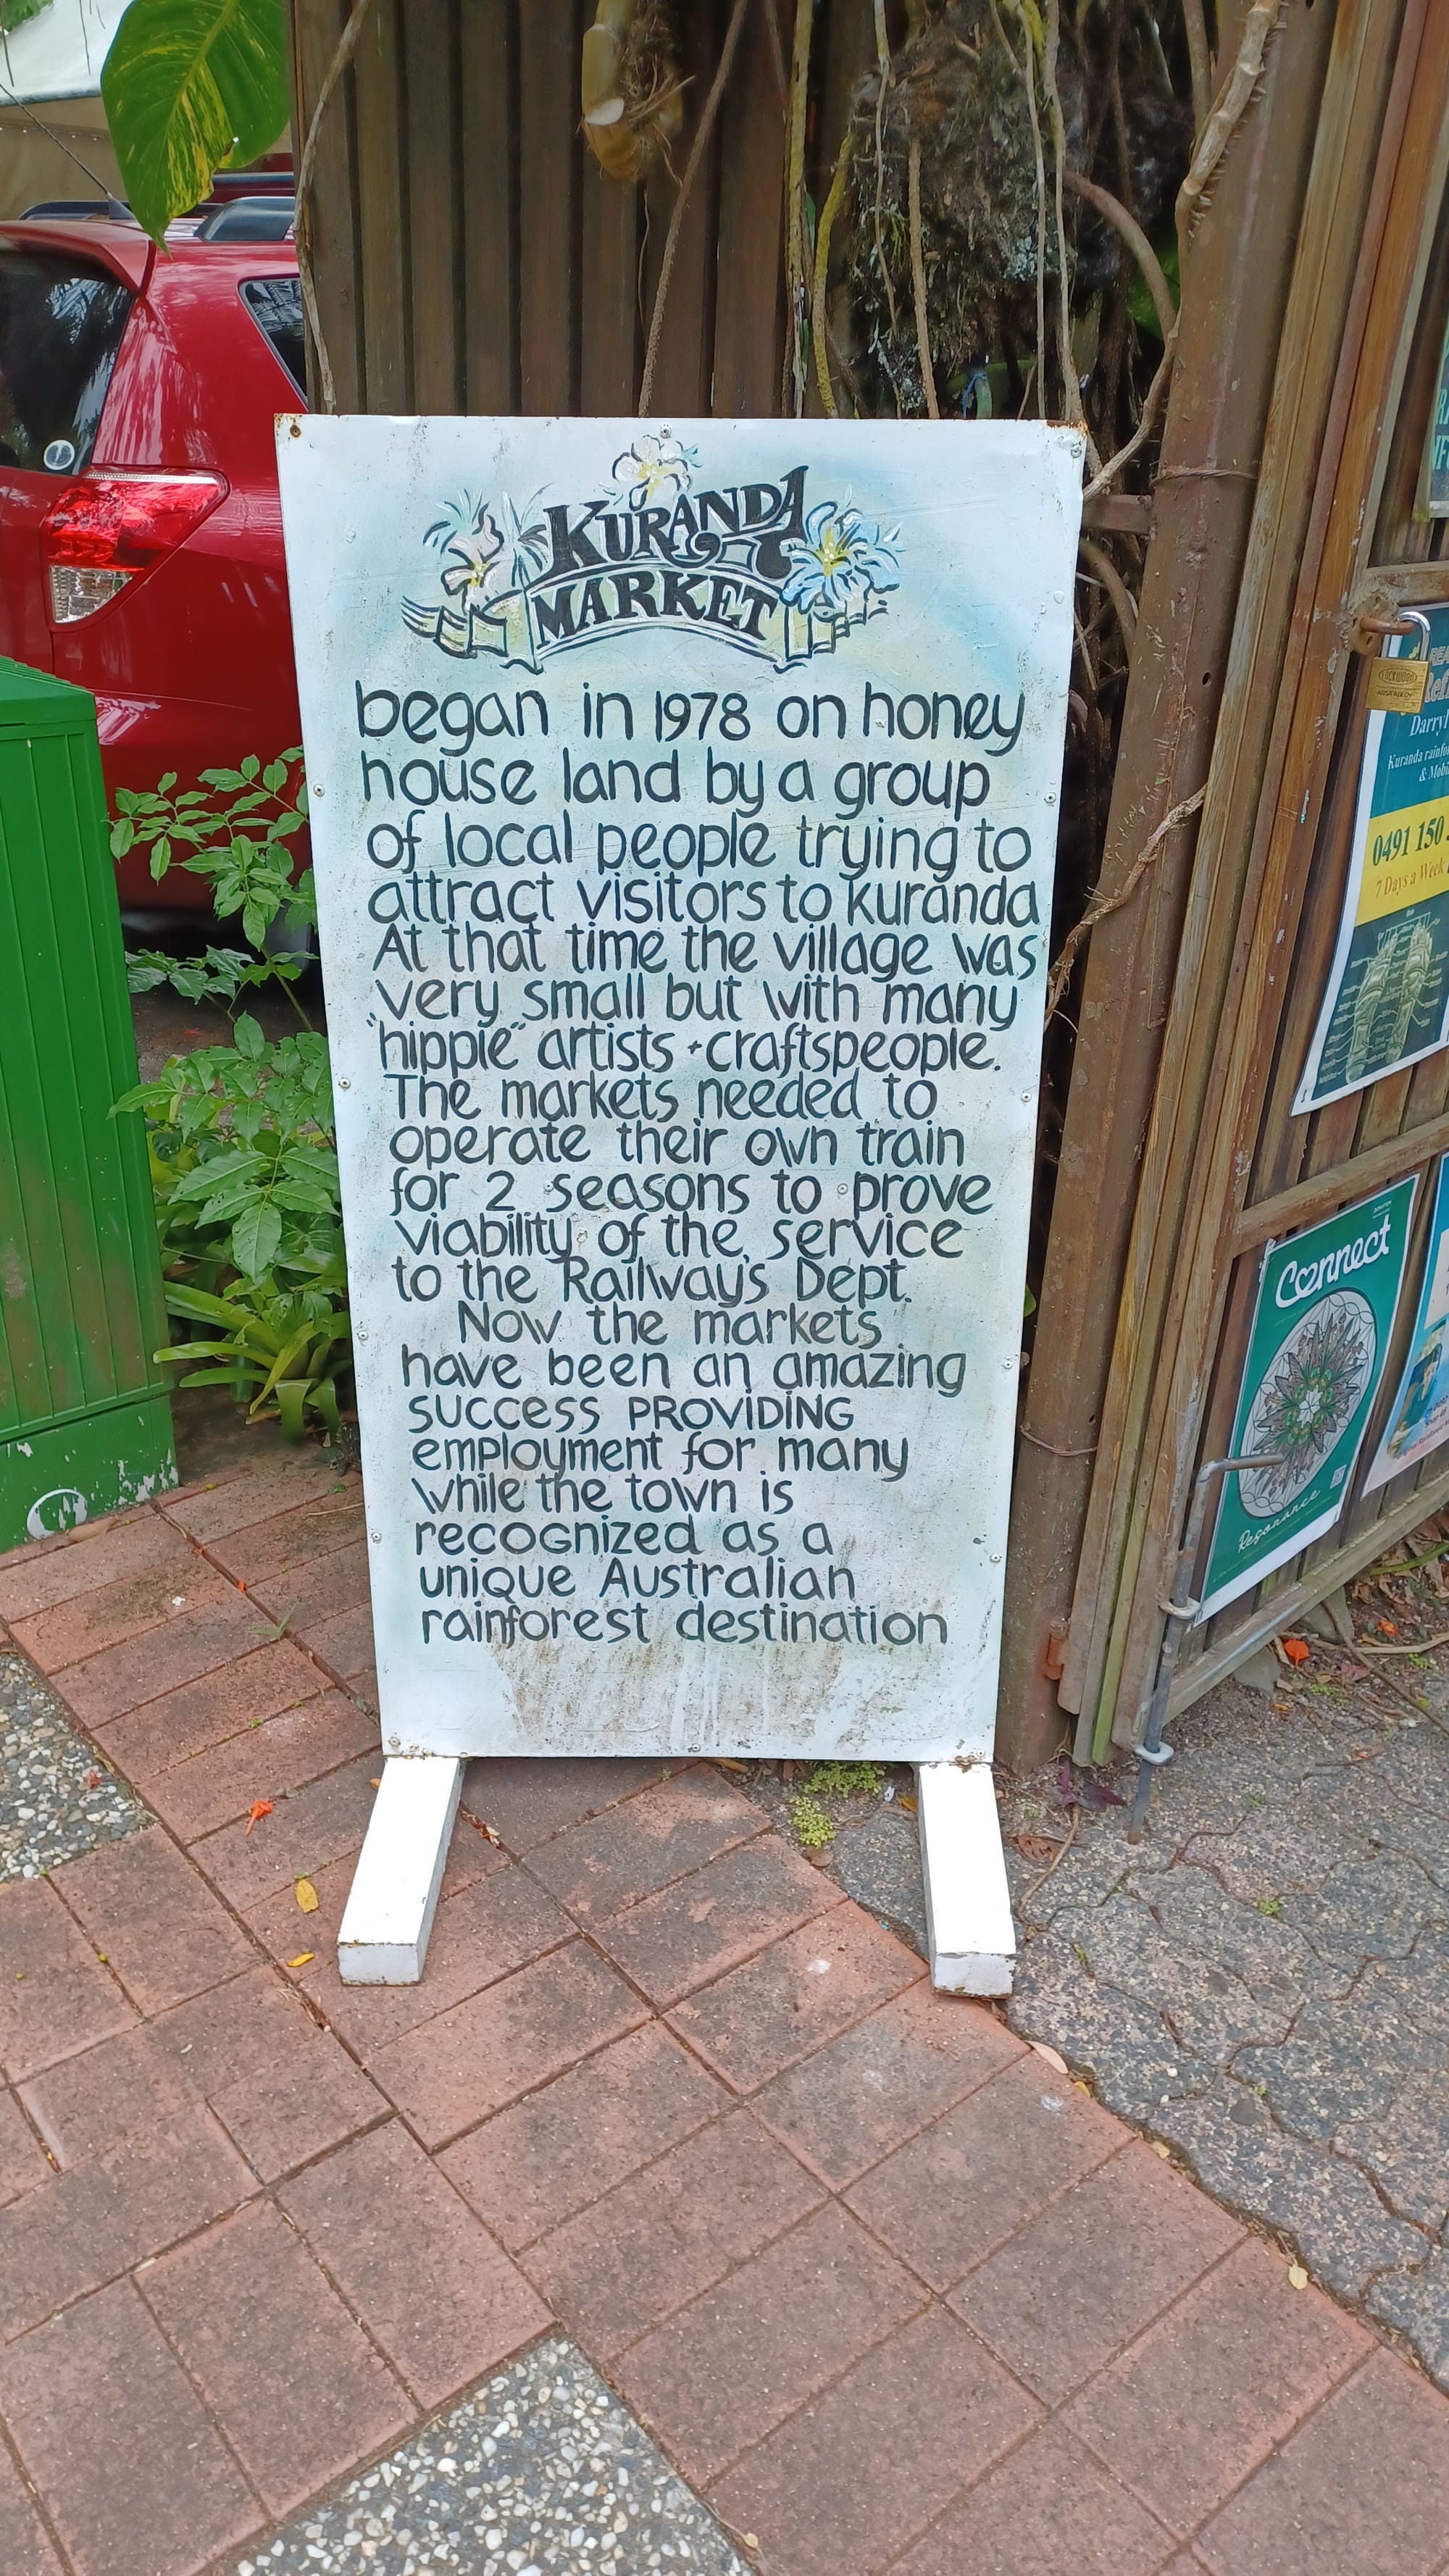 KURANDA
MARKET
began in 1978 on honey
house land by a group
of local people trying to
attract visitors to kuranda
At that time the village was
very small but with many
"hippie" artists + craftspeople.
The markets needed to
operate their own train
for 2 seasons to prove
viability of the service
to the Railway's Dept.
Now the markets
have been an amazing
success PROVIDING
employment for many
while the town is
recognized as a
unique Australian
rainforest destination
LOCKWOOD
Darry
Kuranda rainfo
& Mobi
0491 150
7 Days a Week
Connect
Resonance